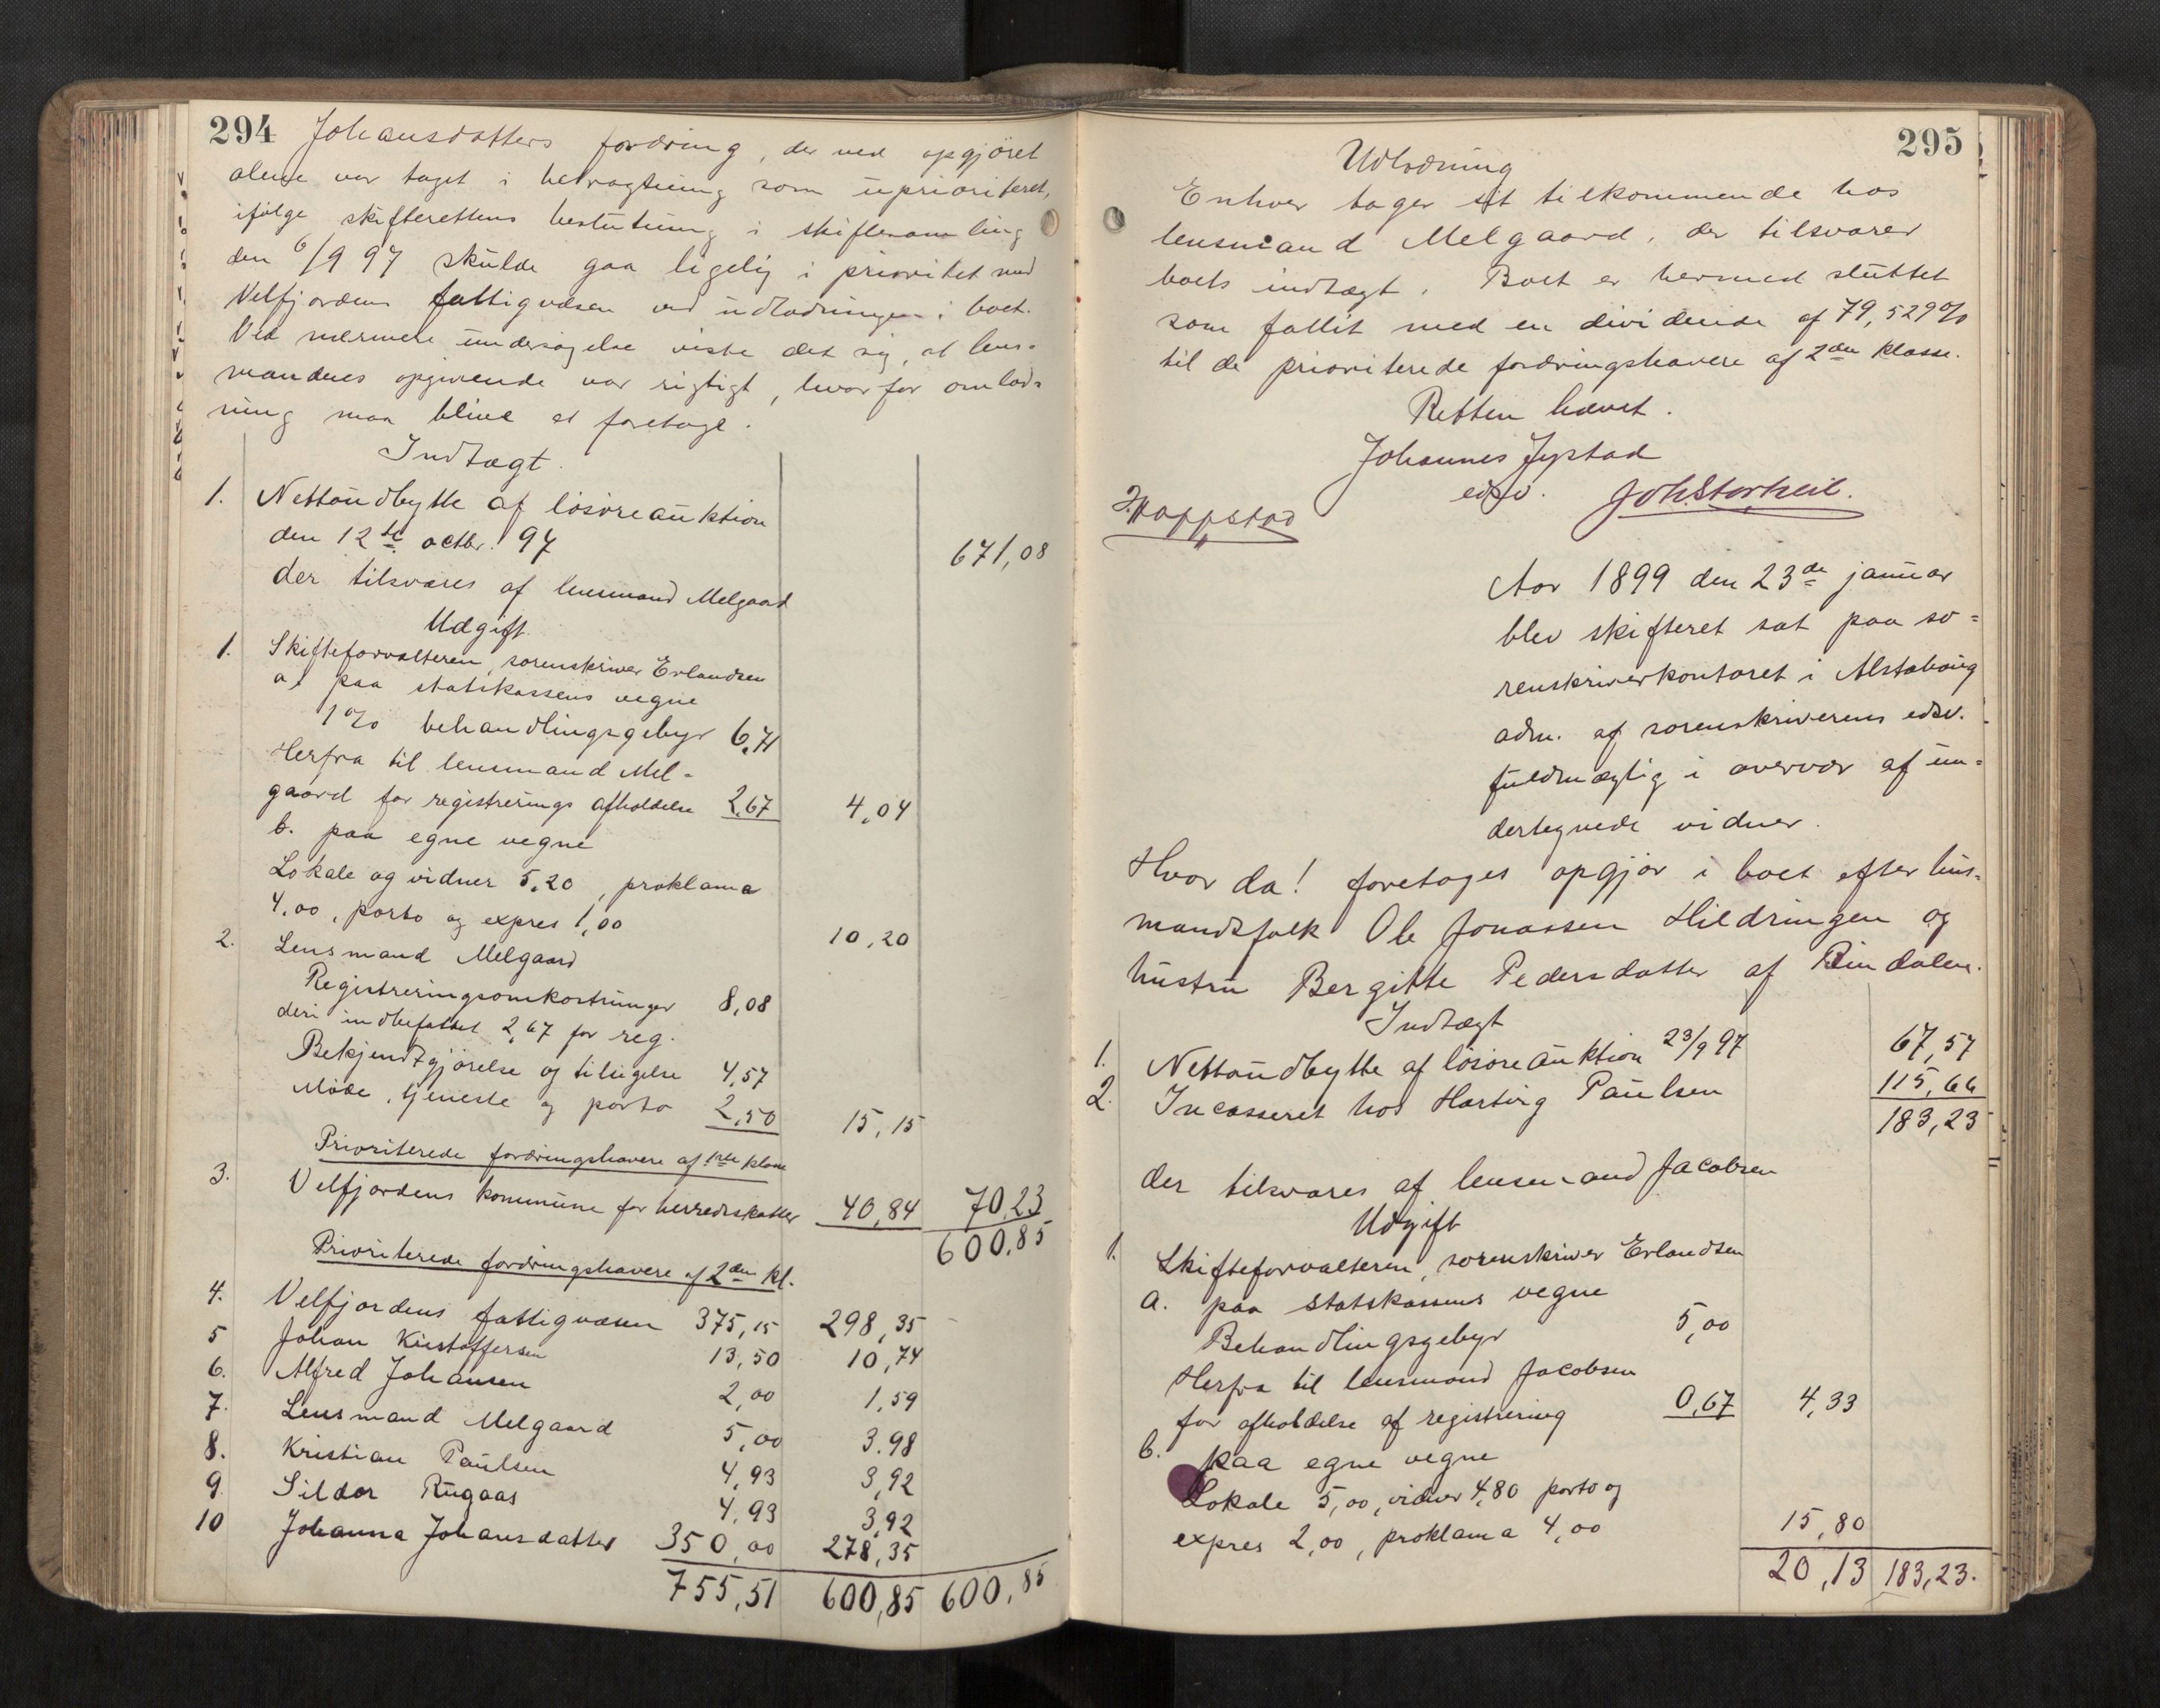 294
Johansdatters fordring, der ved opgjöret
alene var taget i betragtning som uprioriteret,
ifölge skifterettens beslutning i skiftesamling
den 6/9 97 skulde gaa ligelig i prioritet med
Velfjordens fattigvæsen ved udlodningen i boet.
Ved nærmere undersögelse viste det sig, at lens-
mandens opgivende var rigtigt, hvorfor omlod-
ning maa blive at foretage.
Indtægt.
1. Nettoudbytte af lösöreauktion
den 12te octbr. 97 671,08
der tilsvares af lensmand Melgaard
Udgift
1. Skifteforvalteren, sorenskriver Erlandsen
a, paa statskassens vegne
1% behandlingsgebyr 6,71
Herfra til lensmand Mel-
gaard for registrerings afholdelse 2,67 4,04
b. paa egne vegne
Lokale og vidner 5,20, proklama
4,00, porto og expres 1,00 10,20
2. Lensmand Melgaard
Registreringsomkostninger 8,08
deri indbefattet 2,67 for reg.
Bekjendtgjörelse og tilsigelse 4,57
Möde, tjeneste og porto 2,50 15,15
Prioriterede fordringshavere af 1ste klasse
3. Velfjordens kommune for herredsskatter 40,84 70,23
600,85
Prioriterede fordringshavere af 2den kl.
4. Velfjordens fattigvæsen 375,15 298,35
5 Johan Kristoffersen 13,50 10,74
6. Alfred Johansen 2,00 1,59
7. Lensmand Melgaard 5,00 3.98
8. Kristian Paulsen 4,93 3,92
9 Sildor Rugaas 4,93 3,92
10 Johanna Johansdatter 350,00 278,35
755,51 600,85 600,85
295
Udlodning
Enhver tager sit tilkommende hos
lensmand Melgaard, der tilsvarer
boets indtægt. Boet er hermed sluttet
som fallit med en dividende af 79,529%
til de prioriterede fordringshavere af 2den klasse.
Retten hævet.
Johannes Jystad
edsv. Joh. Storheil.
Aar 1899 den 23de januar
blev skifteret sat paa so-
renskriverkontoret i Alstahoug
adm. af sorenskriverens edsv.
fuldmægtig i overvær af un-
dertegnede vidner.
Hvor da! foretages opgjör i boet efter hus-
mandsfolk Ole Jonassen Hildringen og
hustru Bergitte Pedersdatter af Bindalen.
Indtægt
1. Nettoudbytte af lösöreauktion 23/9 97 67,57
2. Incasseret hos Hartvig Paulsen 115,66
183,23
der tilsvares af lensmand Jacobsen
Udgift
1. Skifteforvalteren, sorenskriver Erlandsen
a. paa statskassens vegne
Behandlingsgebyr 5,00
Herfra til lensmand Jacobsen
for afholdelse af registrering 0,67 4,33
b. paa egne vegne
Lokale 5,00, vidner 4,80 porto og
expres 2,00, proklama 4,00 15,80
20,13 183,23.